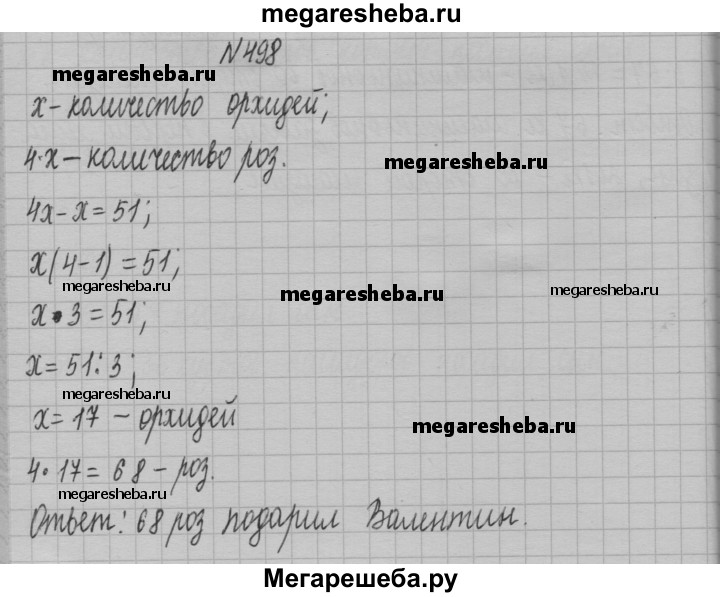 megaresheba.ru
N498
megaresheba.ru
x - количество орхидей;
4·x - количество роз.
megaresheba.ru
4x - x = 51;
x(4-1) = 51;
megaresheba.ru
megaresheba.ru
megaresheba.ru
x·3 = 51;
x = 51:3;
megaresheba.ru
x = 17 - орхидей
megaresheba.ru
4·17 = 68 - роз.
megaresheba.ru
Ответ: 68 роз подарил Валентин.
Мегарешеба.ру